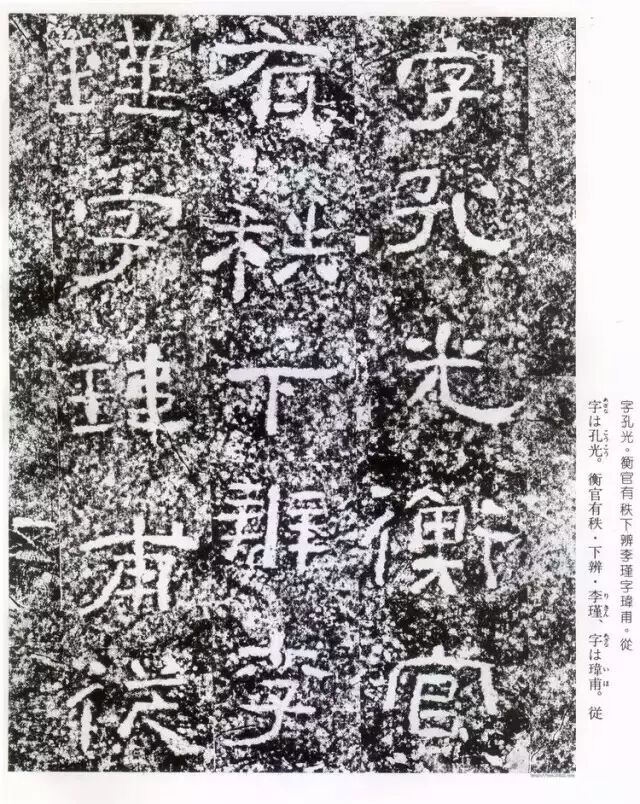 字孔光。衡官有秩下辨李瑾字瑋甫。從
字は孔光。衡官有秩・下辨・李瑾、字は瑋甫。從
字孔光衡官
有秩下辨李
瑾字瑋甫從